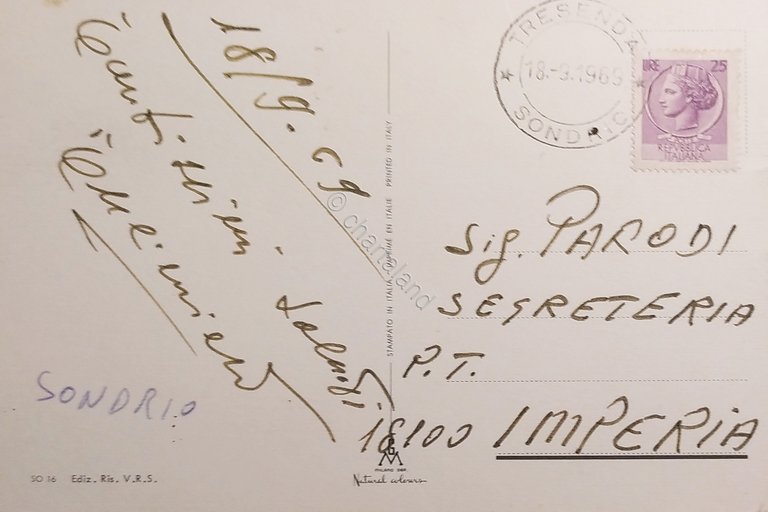 18/9.69
Tantissimi saluti
SONDRIO
SO 16 Ediz. Ris. V.R.S.
STAMPATO IN ITALIA - IMPRIMÉ EN ITALIE PRINTED IN ITALY
MILANO
Natural colours
© chartaland
TRESENDA
18.-9.1969
SONDRIO
LIRE 25
REPVBBLICA
ITALIANA
Sig. PARODI
SEGRETERIA
P.T.
18100 IMPERIA